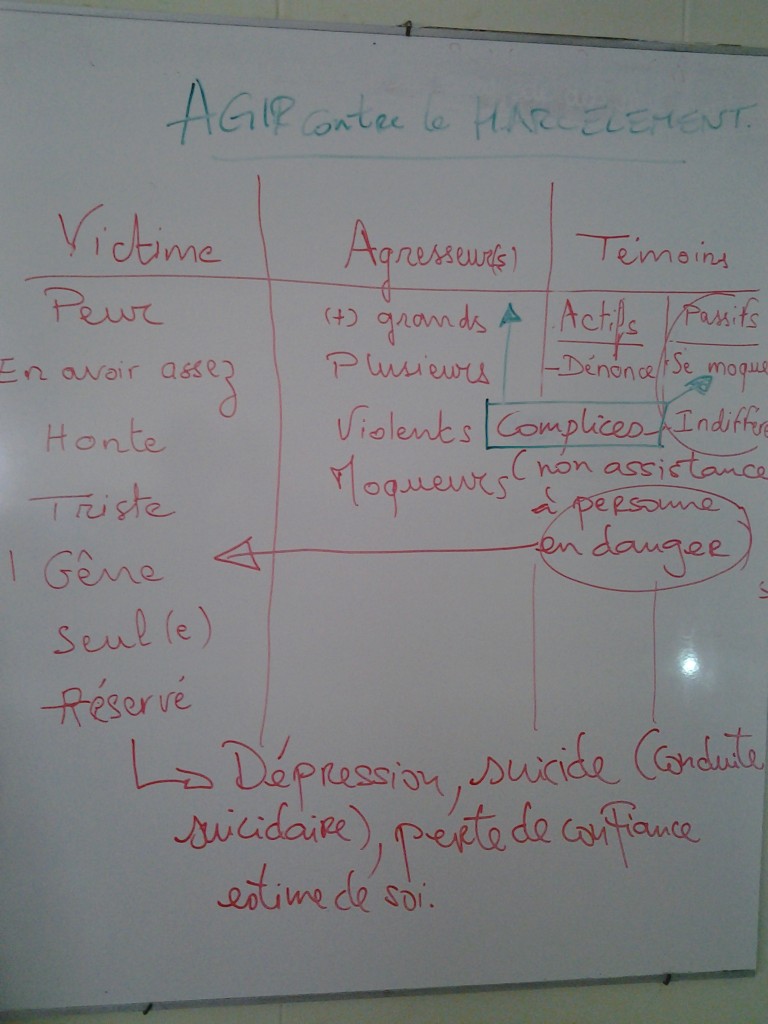 AGIR contre le HARCELEMENT.
Victime
Peur
En avoir assez
Honte
Triste
Gêne
Seul(e)
Réservé
Agresseur(s)
(+) grands
Plusieurs
Violents
Moqueurs
Témoins
Actifs
- Dénonce
Passifs
Se moque
Indiffére
Complices
(non assistance
à personne
en danger
Dépression, suicide (conduite
suicidaire), perte de confiance
estime de soi.